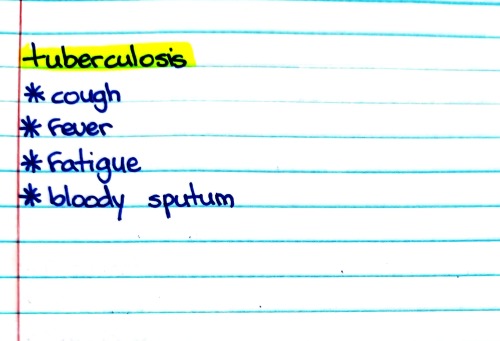 tuberculosis
* cough
* Fever
* Fatigue
* bloody sputum